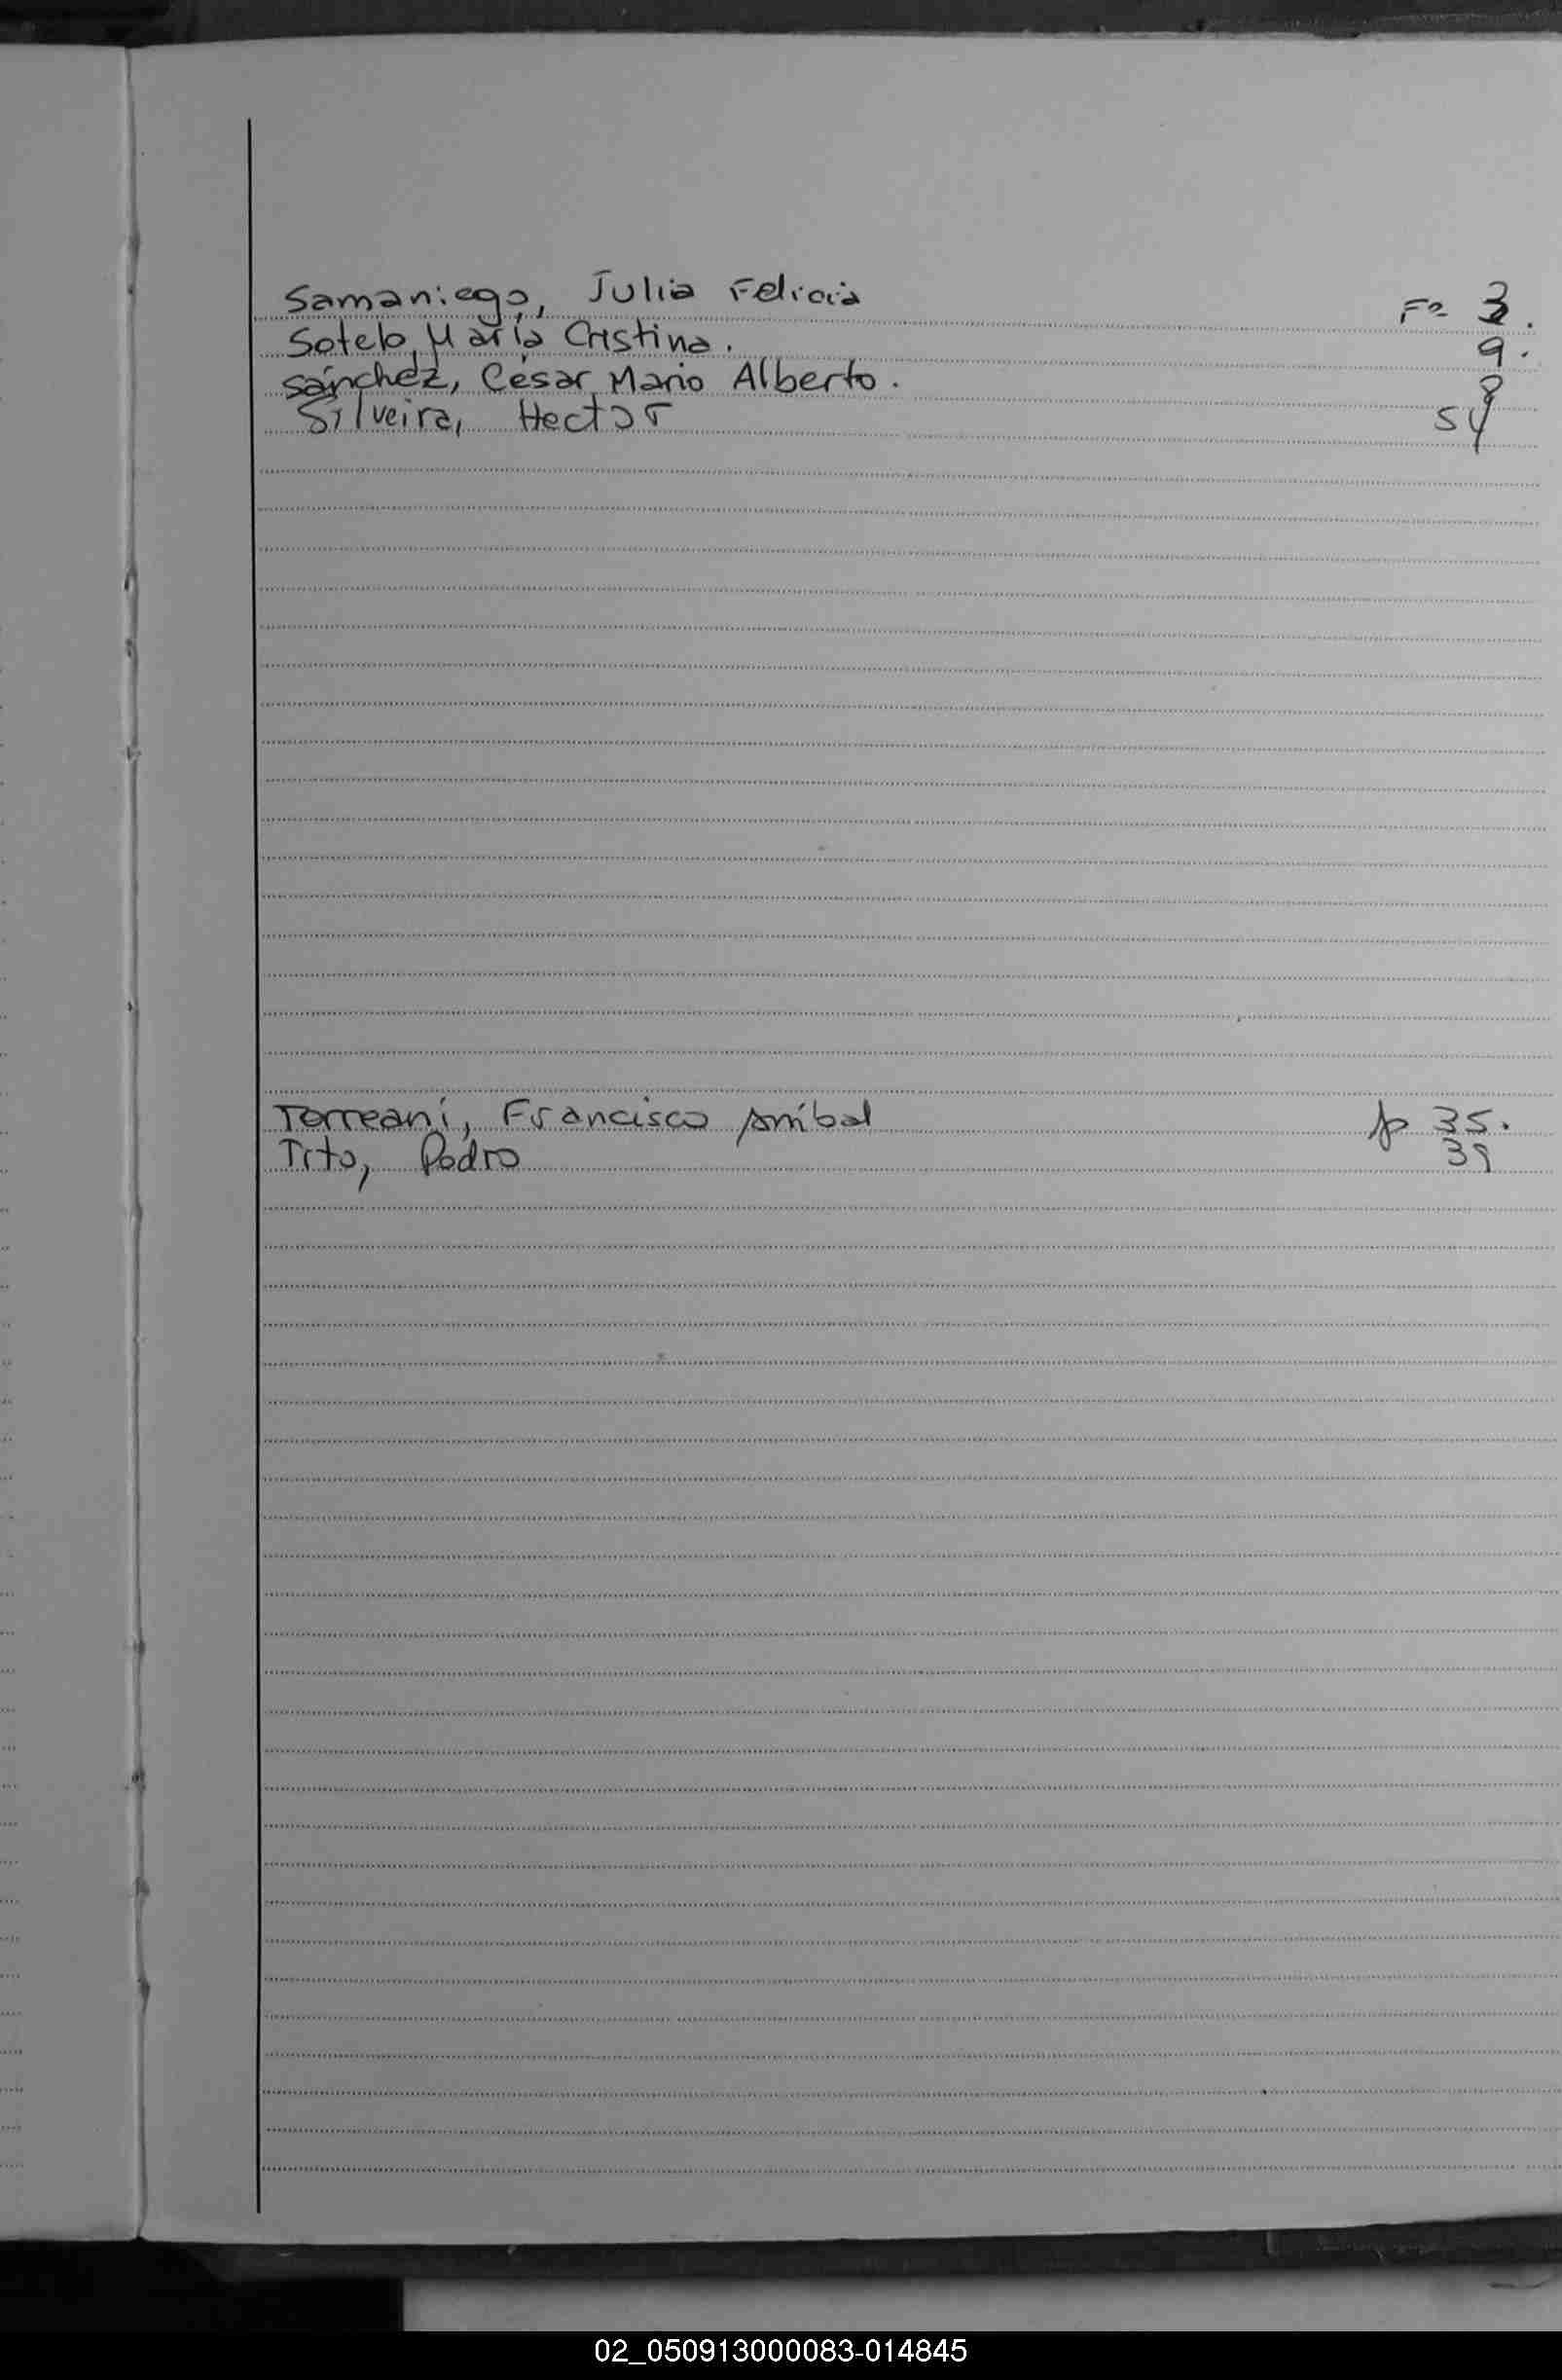 Samaniego, Julia Felicia Fº 3.
Sotelo, María Cristina. 9.
Sánchez, César Mario Alberto. 8
Silveira, Hector 54
Torreani, Francisco Aníbal fo 35.
Tito, Pedro 39
02_050913000083-014845